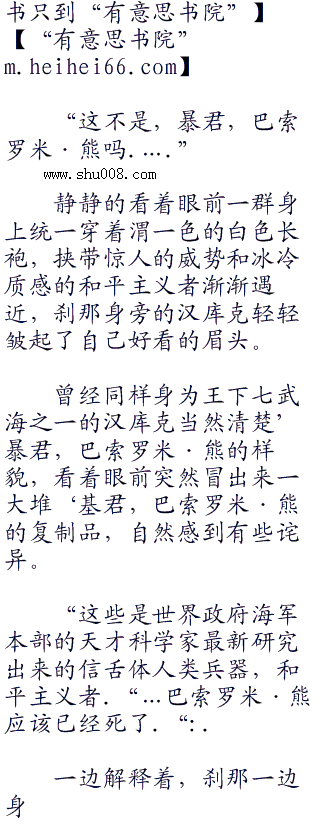 书只到“有意思书院”】
【“有意思书院”
m.heihei66.com】
“这不是，暴君，巴索
罗米·熊吗.….”
www.shu008.com
静静的看着眼前一群身
上统一穿着渭一色的白色长
袍，挟带惊人的威势和冰冷
质感的和平主义者渐渐遇
近，刹那身旁的汉库克轻轻
皱起了自己好看的眉头。
曾经同样身为王下七武
海之一的汉库克当然清楚’
暴君，巴索罗米·熊的样
貌，看着眼前突然冒出来一
大堆‘基君，巴索罗米·熊
的复制品，自然感到有些诧
异。
“这些是世界政府海军
本部的天才科学家最新研究
出来的信舌体人类兵器，和
平主义者.“…巴索罗米·熊
应该已经死了.“:.
一边解释着，刹那一边
身